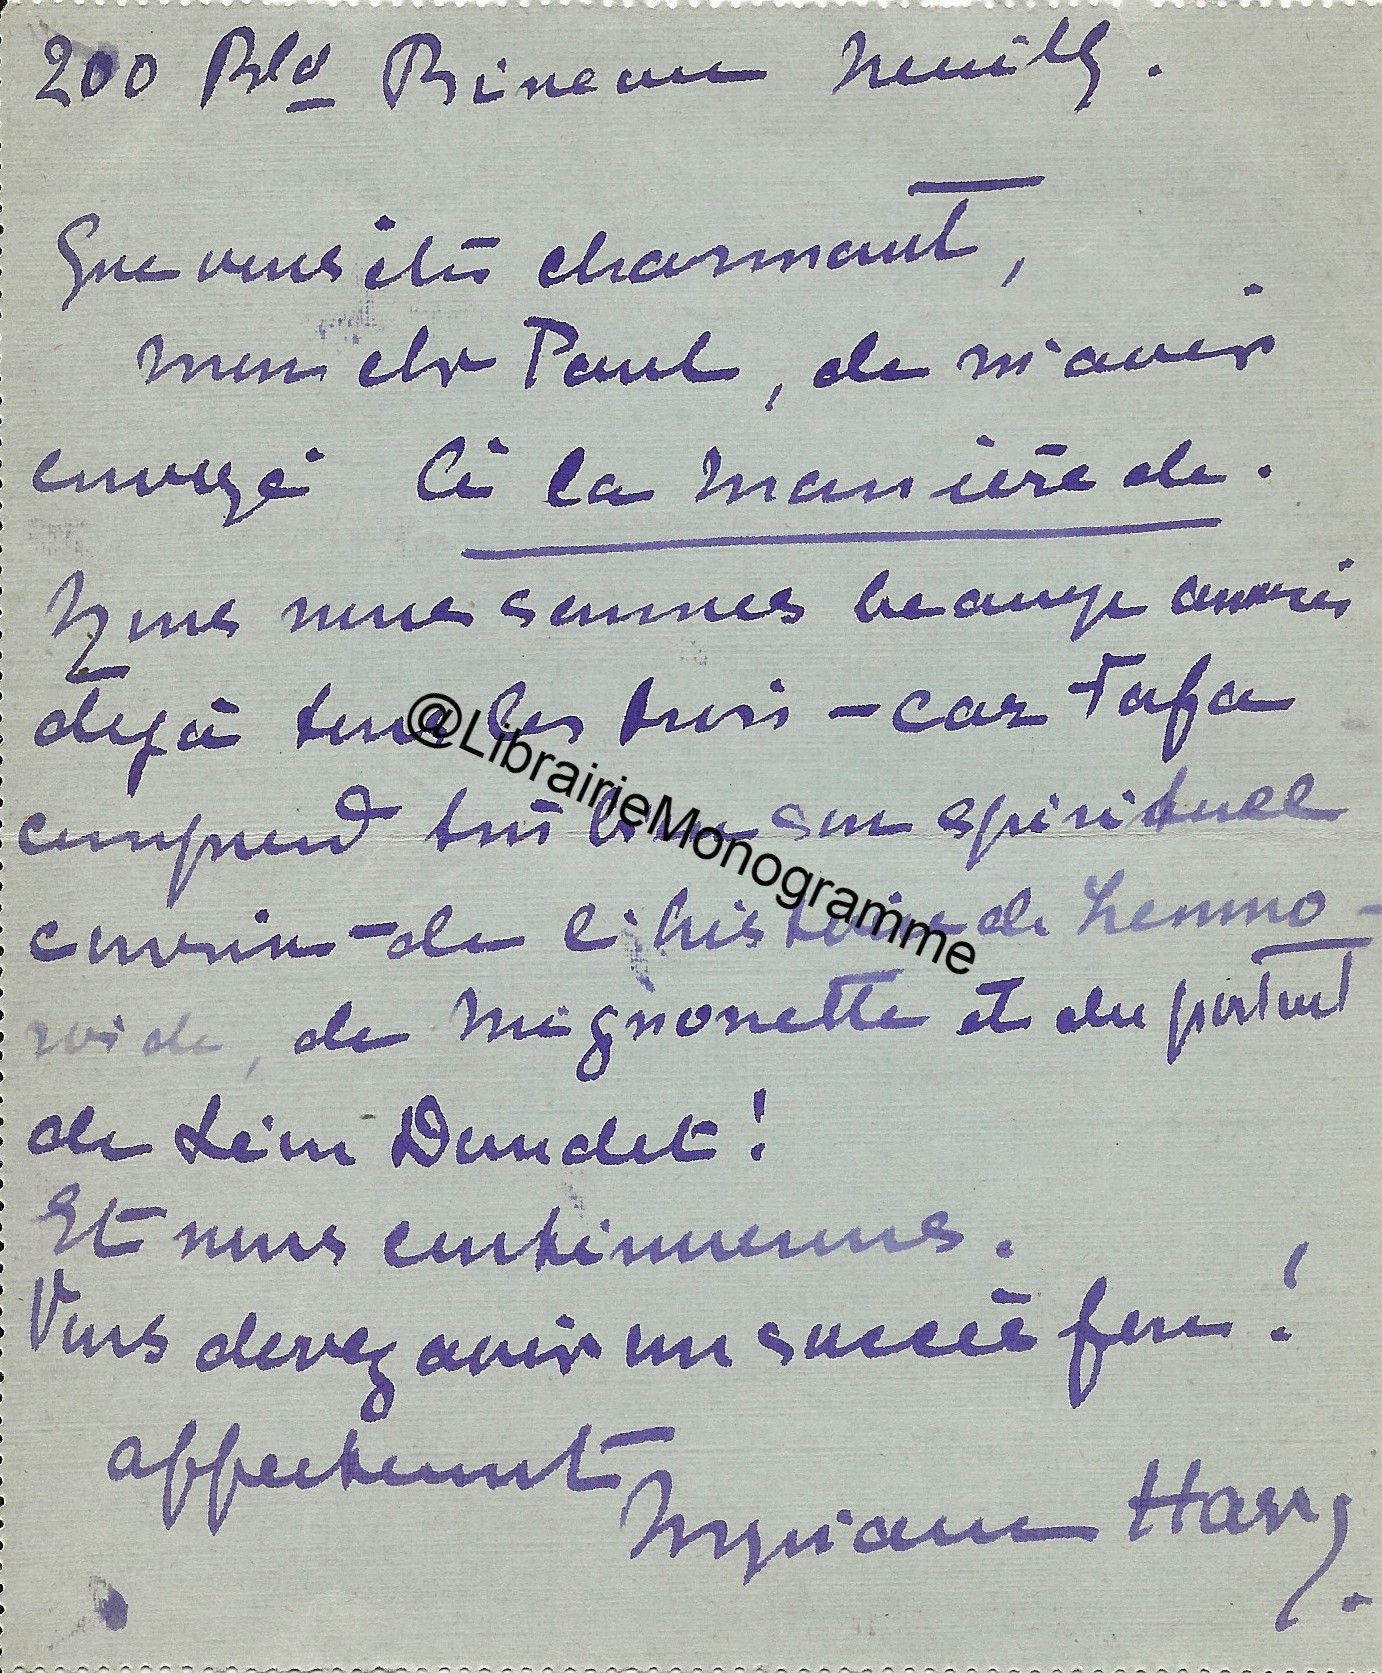 200 Bld Bineau Neuilly.
Que vous êtes charmant,
mon cher Paul, de m'avoir
envoyé "à la manière de.
Nous nous sommes beaucoup amusés
déjà tous les trois - car Tafa
comprend très bien son spirituel
cousin - de l'histoire de
de Mignonette et du portrait
de Léon Daudet !
Et nous continuerons.
Vous devez avoir un succès fou !
affectueusement
Myriam Harry.
@LibrairieMonogramme